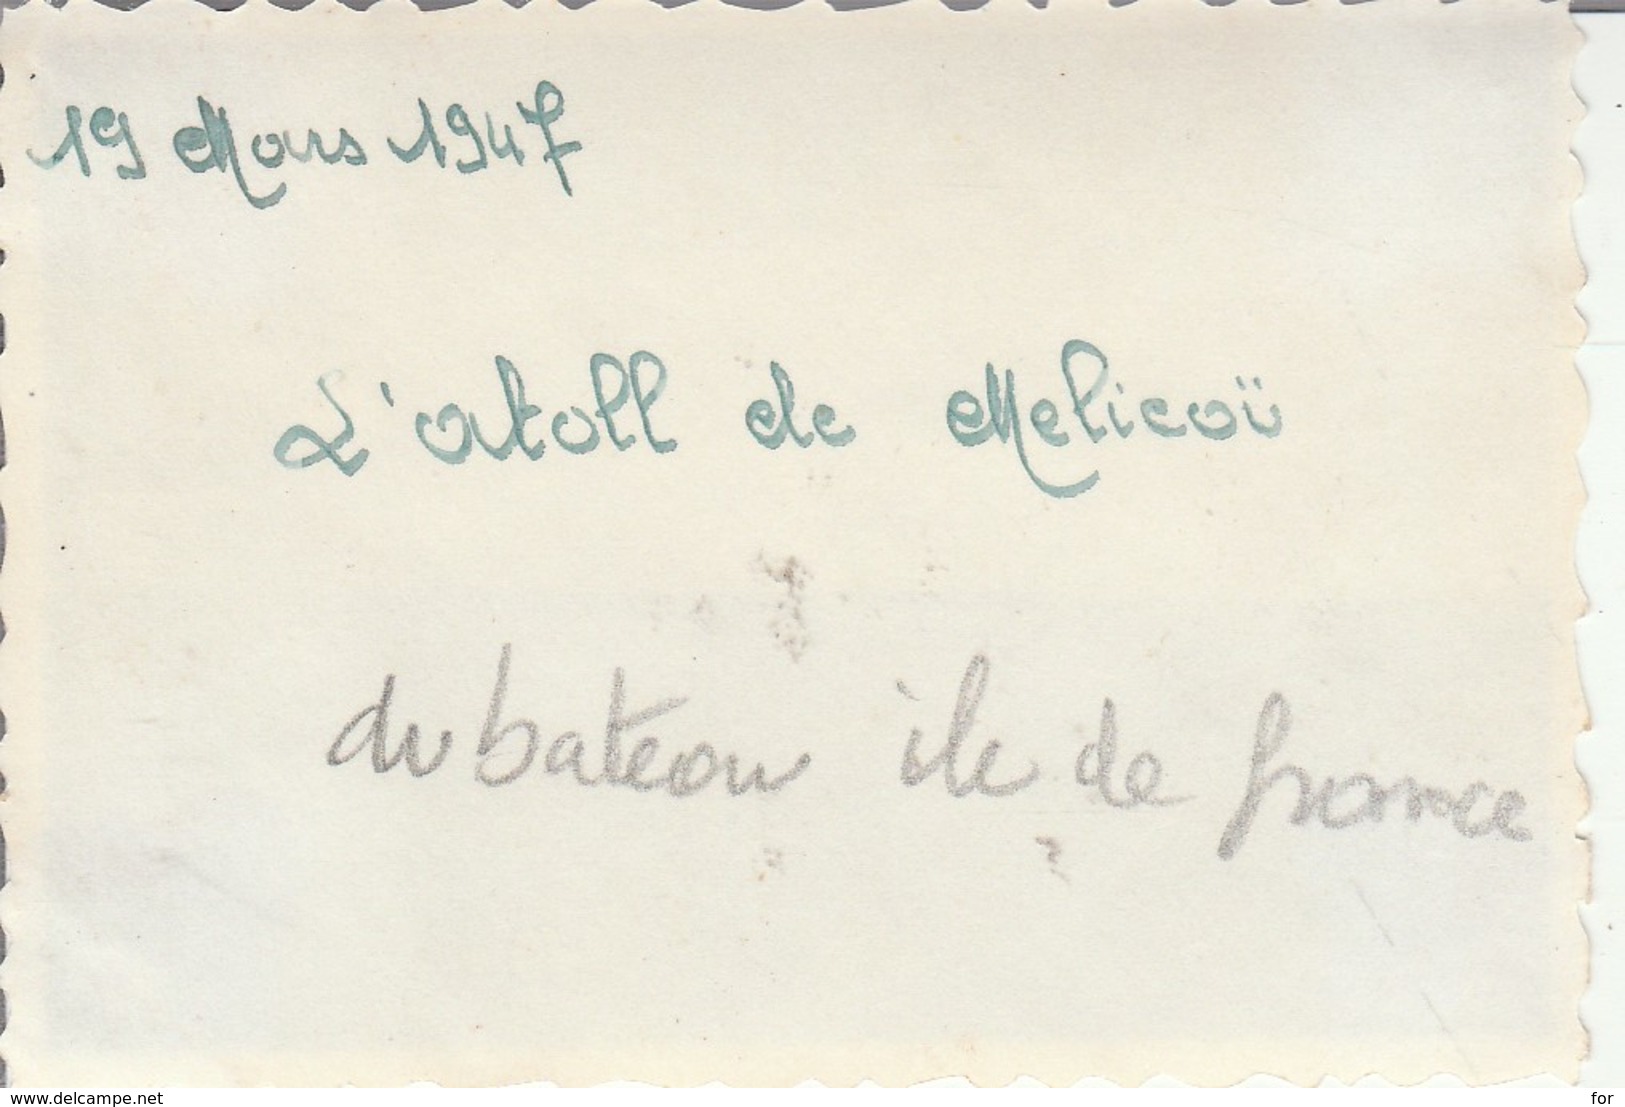 19 Mars 1947
L'atoll de Melicoü
du bateau île de france
www.delcampe.net
for